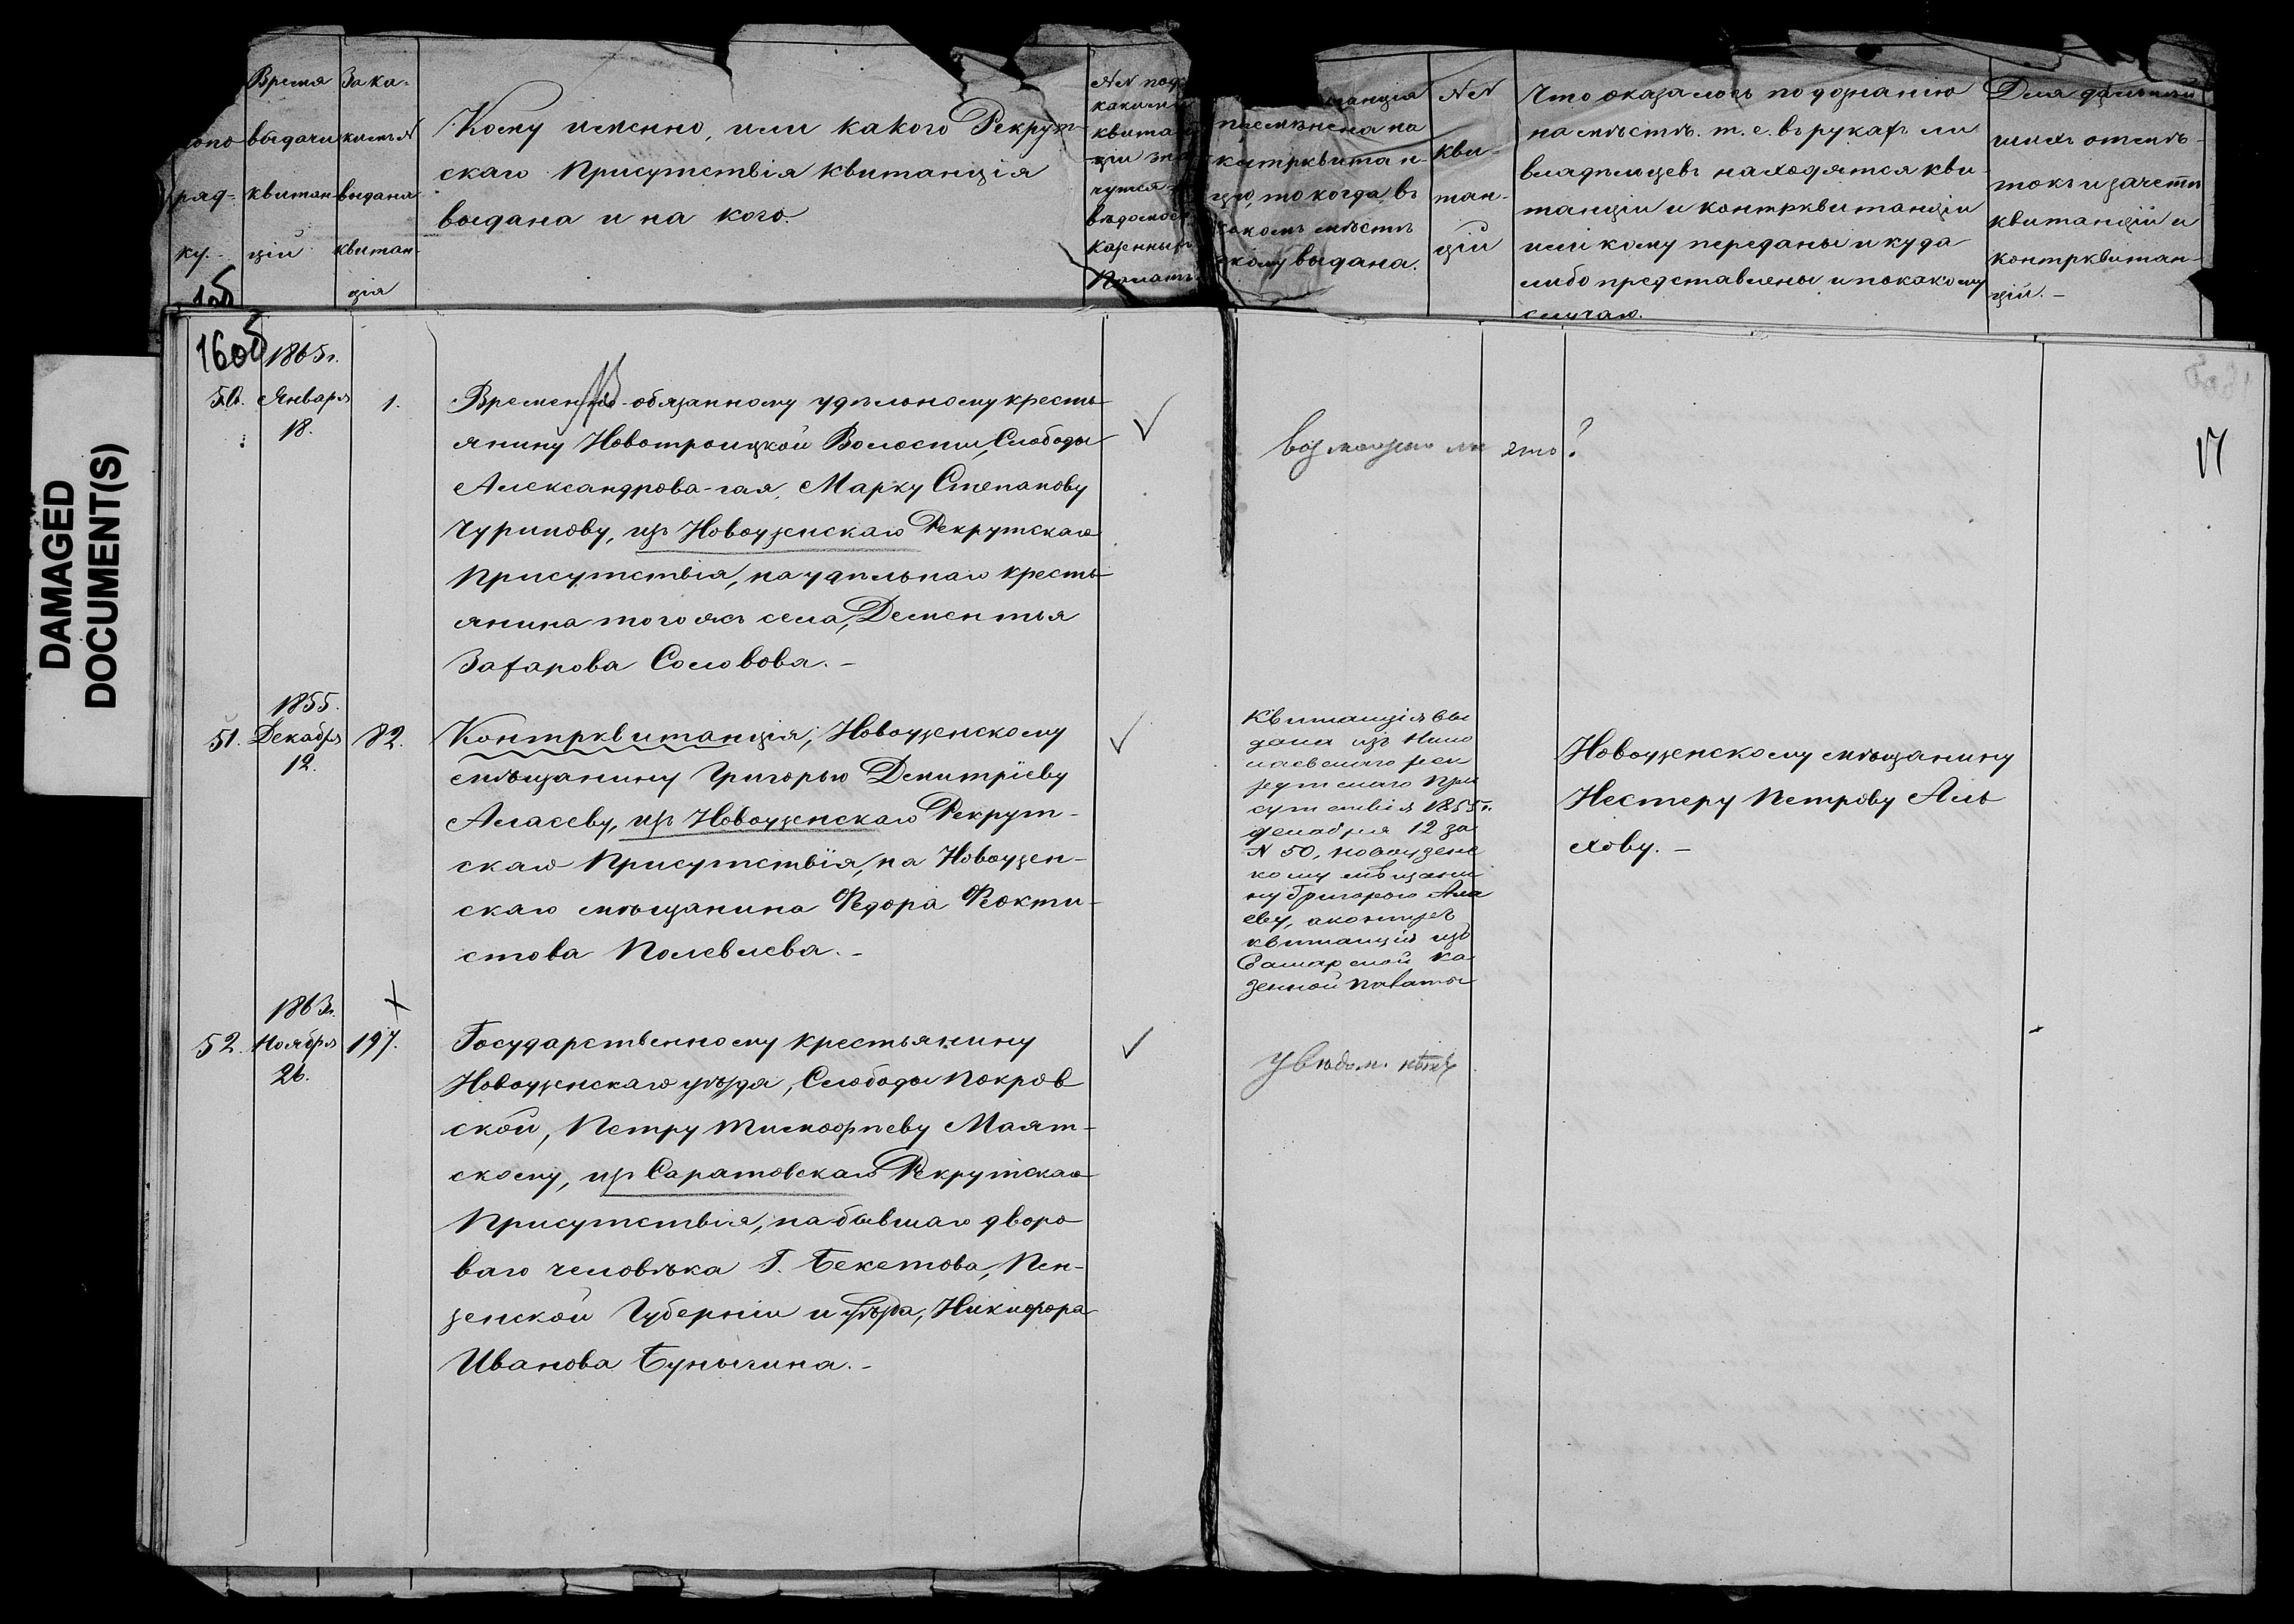 Время
выдачи
квитан
цій
За ка-
кимъ №
выдана
квитан-
ція
ряд-
ку.
Кому именно, или какого Рекрут-
скаго Присутствія квитанція
выдана и на кого.
№№ под
какими
квитан
ціи зна
чутся
вѣдомос
Казенных
Палатъ
танція
промѣнена на
контрквитан-
цію, то когда, въ
какомъ мѣстѣ
и кому выдана.
№№
кви-
тан-
цій
Что оказалось по дознанію
на мѣстѣ. т. е. въ рукахъ ли
владѣльцевъ находятся кви-
танціи и контрквитанціи
или кому переданы и куда
либо представлены и по какому
случаю.
Для дальнѣй
шихъ отмѣ-
токъ и зачетѣ
квитанцій и
контрквитан-
цій. -
16об
17
DAMAGED
DOCUMENT(S)
1865 г.
50. Января 1.
18.
Временно-обязанному удѣльному кресть-
янину Новотроицкой Волости, Слободы
Александрова-гая, Марку Степанову
Чурикову, изъ Новоузенскаго Рекрутскаго
Присутствія, на удѣльнаго кресть-
янина того жъ села, Дементья
Захарова Соловова. -
возможно ли это?
1855.
51. Декабря 82.
12.
Контрквитанція, Новоузенскому
мѣщанину Григорью Дмитріеву
Алаеву, изъ Новоузенскаго Рекрут-
скаго Присутствія, на Новоузен-
скаго мѣщанина Федора Феокти-
стова Полевлева. -
Квитанція вы
дана изъ Нико
лаевскаго рек
рутскаго При
сутствія 1855 г.
декабря 12 за
№ 50, новоузенс
кому мѣщани
ну Григорью Ала
еву, а контръ
квитанція изъ
Самарской Ка
зенной палаты
Новоузенскому мѣщанину
Нестеру Петрову Аль
хову. -
1863 г.
52. Ноября 197.
26.
Государственному крестьянину
Новоузенскаго уѣзда, Слободы Покров
ской, Петру Тимофѣеву Маят-
скому, изъ Саратовскаго Рекрутскаго
Присутствія, на бывшаго дворо
ваго человѣка Г. Бекетова, Пен-
зенской Губерніи и уѣзда, Никифора
Иванова Бунычина. -
Увѣдом. нѣтъ